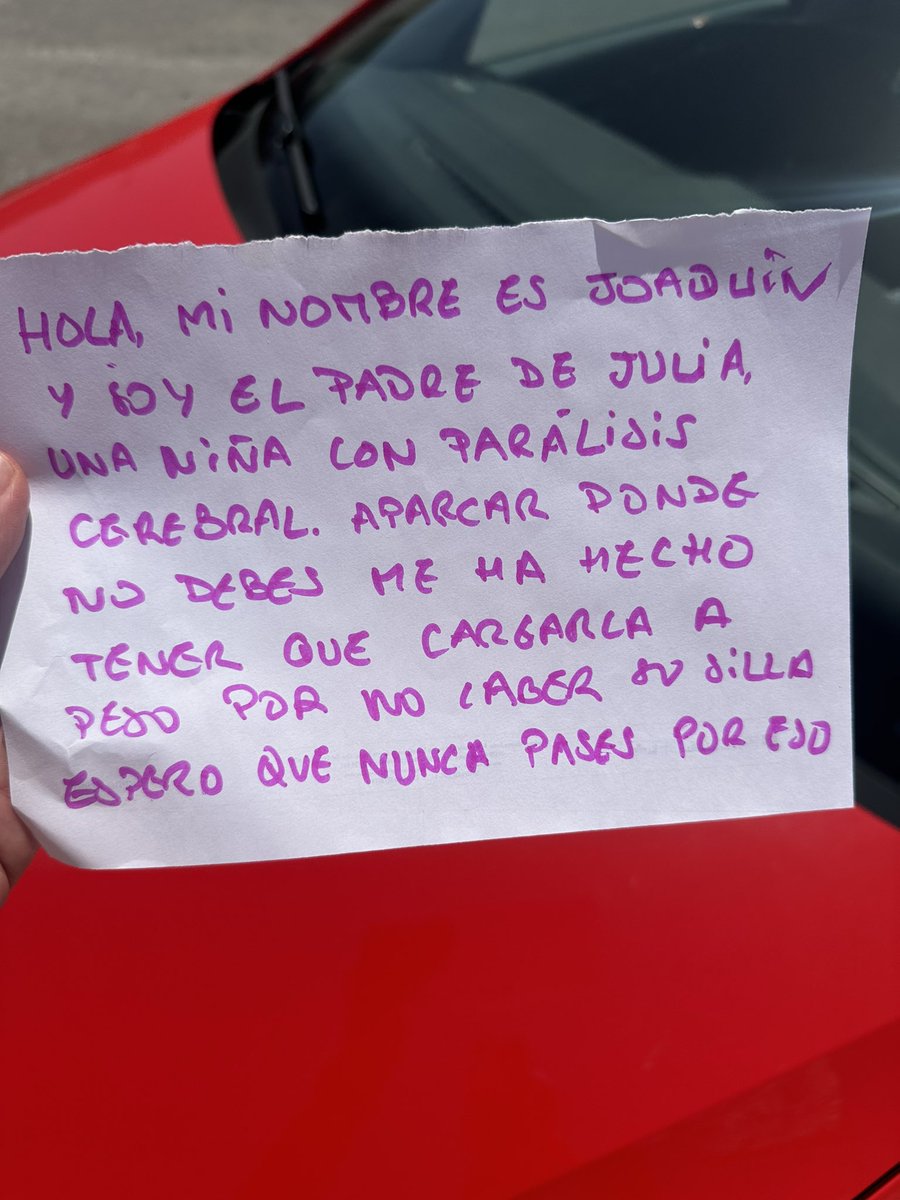 HOLA, MI NOMBRE ES JOAQUÍN
Y SOY EL PADRE DE JULIA,
UNA NIÑA CON PARÁLISIS
CEREBRAL. APARCAR DONDE
NO DEBES ME HA HECHO
TENER QUE CARGARLA A
PESO POR NO CABER SU SILLA
ESPERO QUE NUNCA PASES POR ESO